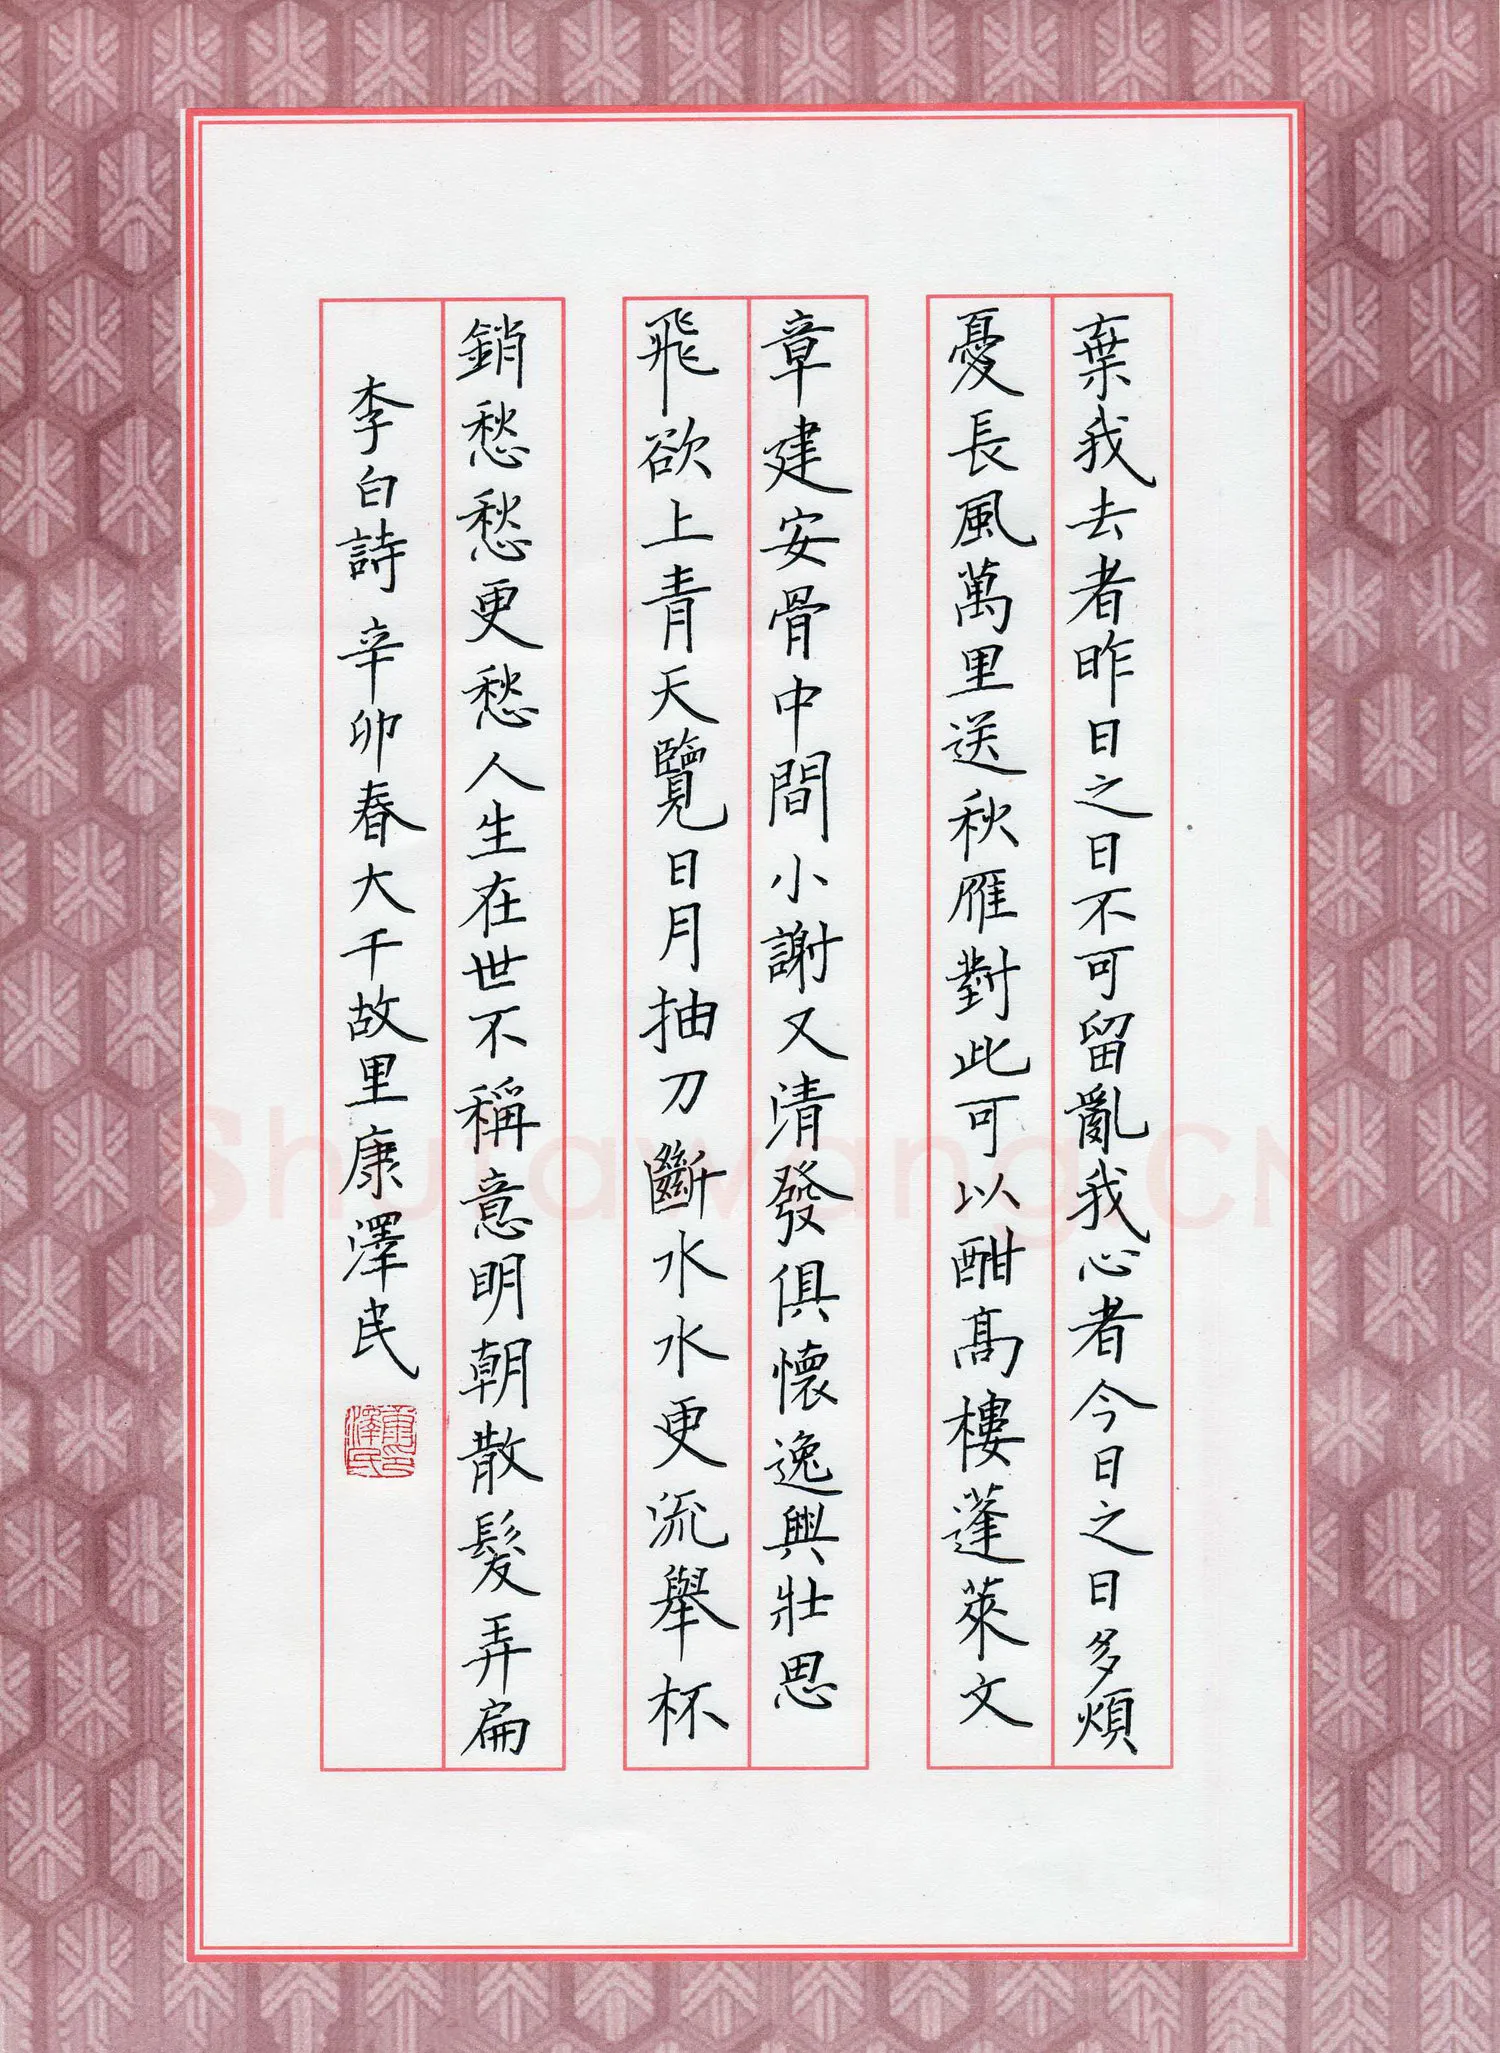 棄我去者昨日之日不可留亂我心者今日之日多煩
憂長風萬里送秋雁對此可以酣高樓蓬萊文
章建安骨中間小謝又清發俱懷逸興壯思
飛欲上青天覽日月抽刀斷水水更流舉杯
銷愁愁更愁人生在世不稱意明朝散髮弄扁
李白詩辛卯春大千故里康澤民
康澤民印
Shufawang.CN